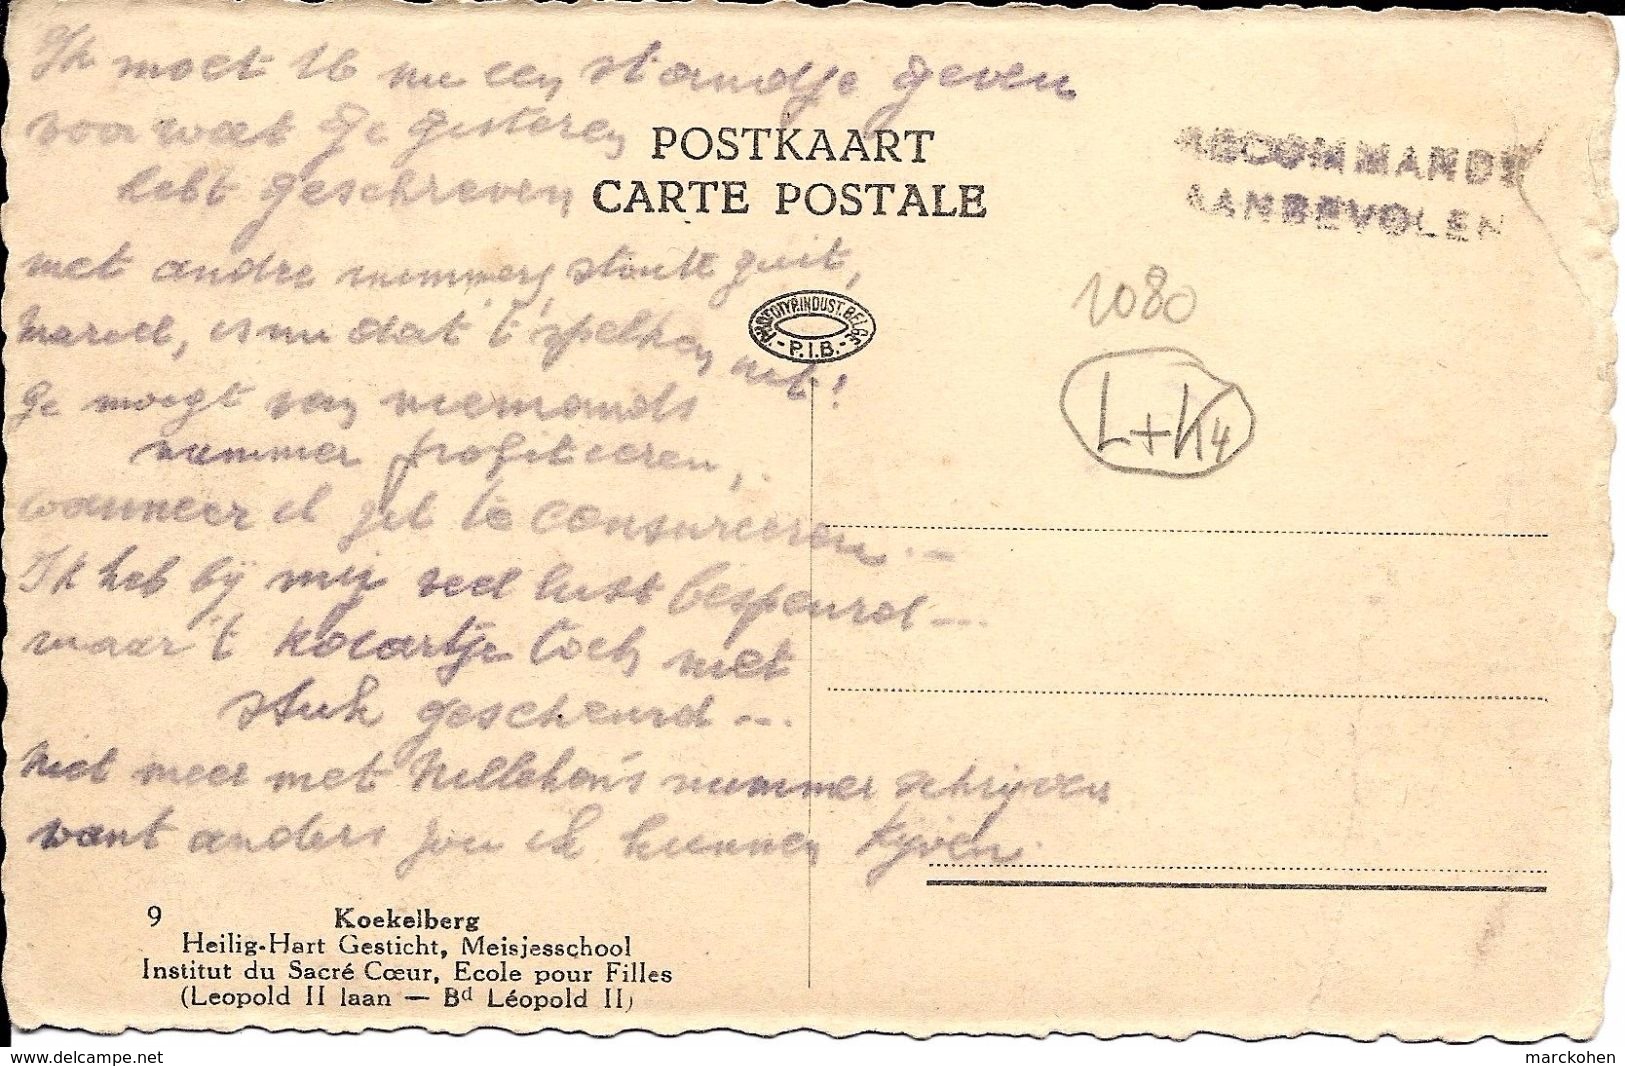 Ik moet U nu een standje geven
voor wat Ge gisteren
hebt geschreven
met andre nummers, stoute guit,
Marcel, is nu dat 't spelken uit!
Ge moogt van niemands
nummer profiteeren,
wanneer el
Ik heb bij mij veel lust bespeurd ...
waar 't kaartje toch niet
stuk gescheurd ...
Niet meer met Nelleken's nummer schrijven
want anders zou ik kunnen kijven.
POSTKAART
CARTE POSTALE
RECOMMANDÉ
AANBEVOLEN
1080
L+K4
P.I.B.
9 Koekelberg
Heilig-Hart Gesticht, Meisjesschool
Institut du Sacré Cœur, Ecole pour Filles
(Leopold II laan — Bd Léopold II)
https://www.delcampe.net
marckohen